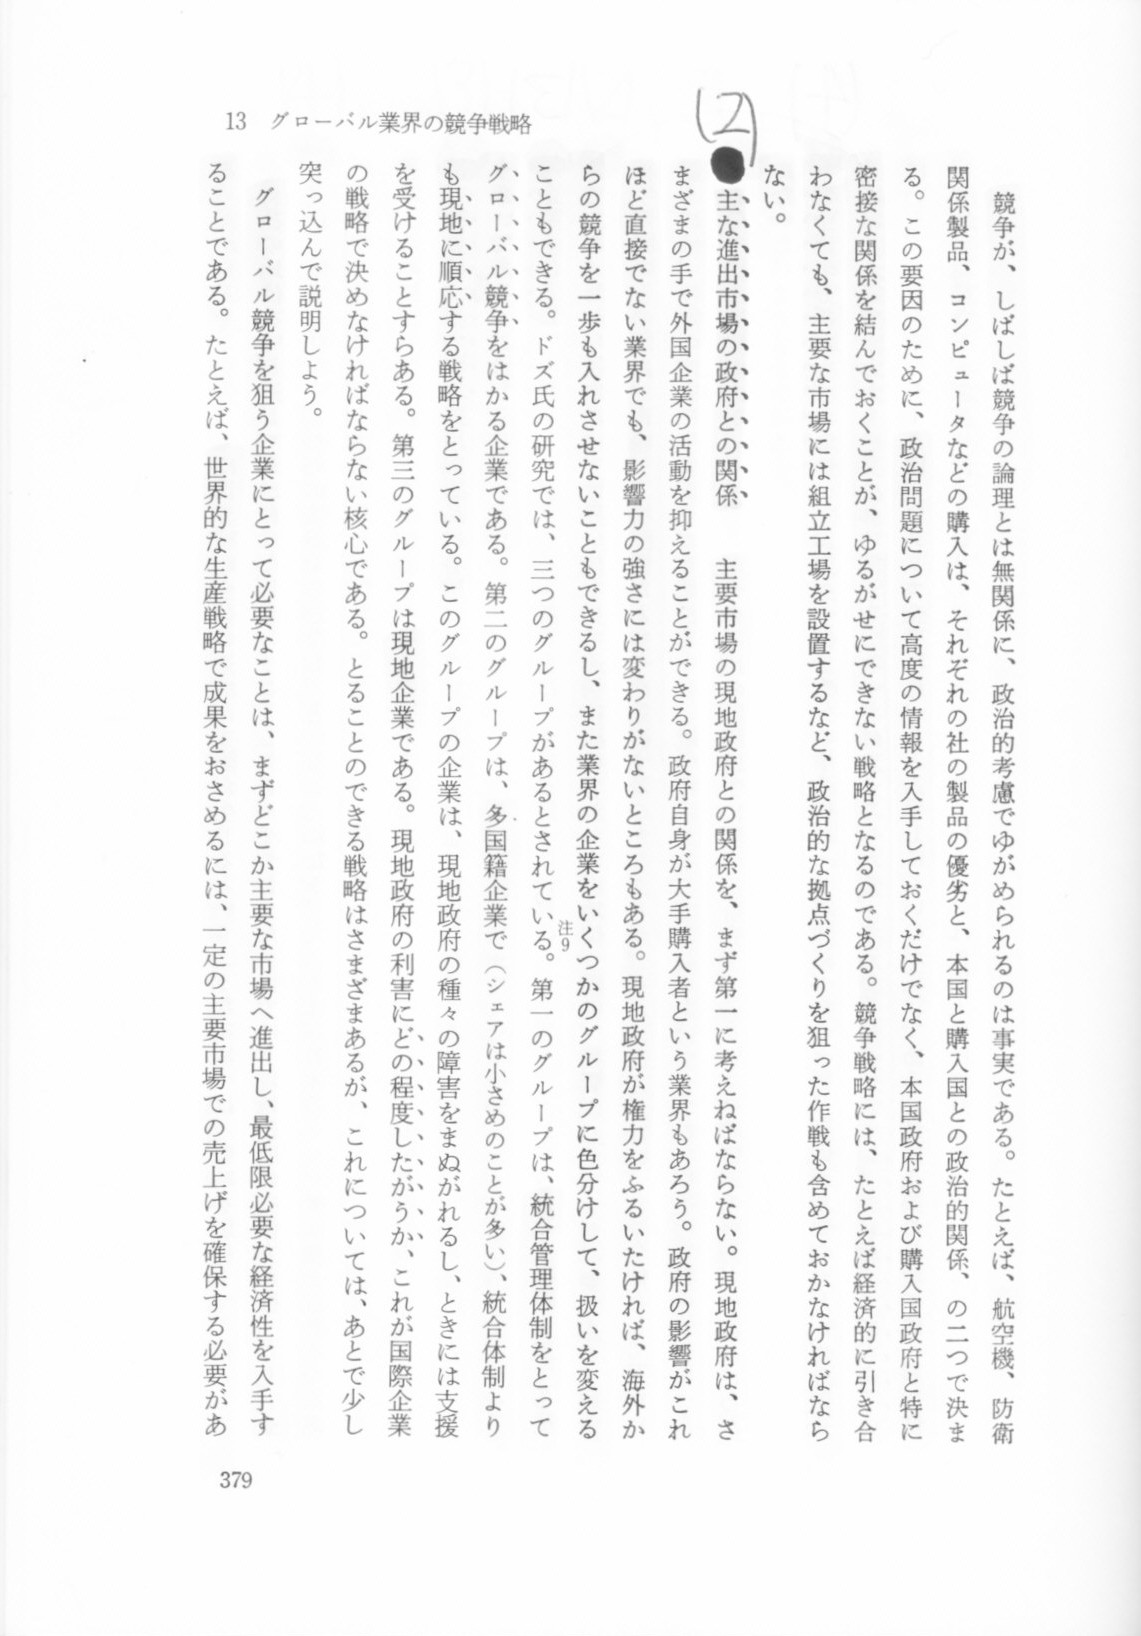 13 グローバル業界の競争戦略
(2)
競争が、しばしば競争の論理とは無関係に、政治的考慮でゆがめられるのは事実である。たとえば、航空機、防衛
関係製品、コンピュータなどの購入は、それぞれの社の製品の優劣と、本国と購入国との政治的関係、の二つで決ま
る。この要因のために、政治問題について高度の情報を入手しておくだけでなく、本国政府および購入国政府と特に
密接な関係を結んでおくことが、ゆるがせにできない戦略となるのである。競争戦略には、たとえば経済的に引き合
わなくても、主要な市場には組立工場を設置するなど、政治的な拠点づくりを狙った作戦も含めておかなければなら
ない。
●主な進出市場の政府との関係 主要市場の現地政府との関係を、まず第一に考えねばならない。現地政府は、さ
まざまの手で外国企業の活動を抑えることができる。政府自身が大手購入者という業界もあろう。政府の影響がこれ
ほど直接でない業界でも、影響力の強さには変わりがないところもある。現地政府が権力をふるいたければ、海外か
らの競争を一歩も入れさせないこともできるし、また業界の企業をいくつかのグループに色分けして、扱いを変える
こともできる。ドズ氏の研究では、三つのグループがあるとされている。注9第一のグループは、統合管理体制をとって
グローバル競争をはかる企業である。第二のグループは、多国籍企業で(シェアは小さめのことが多い)、統合体制より
も現地に順応する戦略をとっている。このグループの企業は、現地政府の種々の障害をまぬがれるし、ときには支援
を受けることすらある。第三のグループは現地企業である。現地政府の利害にどの程度したがうか、これが国際企業
の戦略で決めなければならない核心である。とることのできる戦略はさまざまあるが、これについては、あとで少し
突っ込んで説明しよう。
グローバル競争を狙う企業にとって必要なことは、まずどこか主要な市場へ進出し、最低限必要な経済性を入手す
ることである。たとえば、世界的な生産戦略で成果をおさめるには、一定の主要市場での売上げを確保する必要があ
379